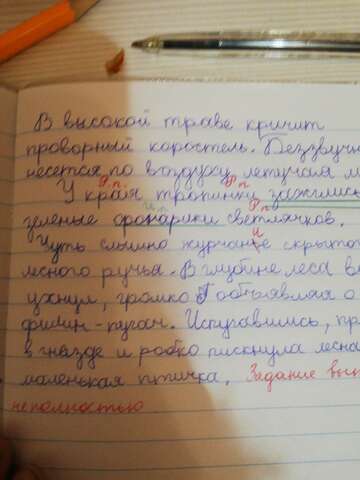 В высокой траве кричит
проворный коростель. Беззвучно
несется по воздуху летучая м
Р.п. Р.п.
У края тропинки зажглись
и Р.п.
зеленые фонарики светлячков.
и
Чуть слышно журчание скрыто
лесного ручья. В глубине леса в
ухнул, громко объявляя о
филин-пугач. Испугавшись, пр
в гнезде и робко пискнула лесна
маленькая птичка. Задание вып
неполностью